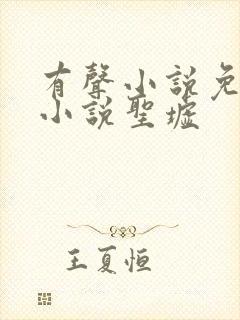 有聲小説免
小説聖墟
王夏恒